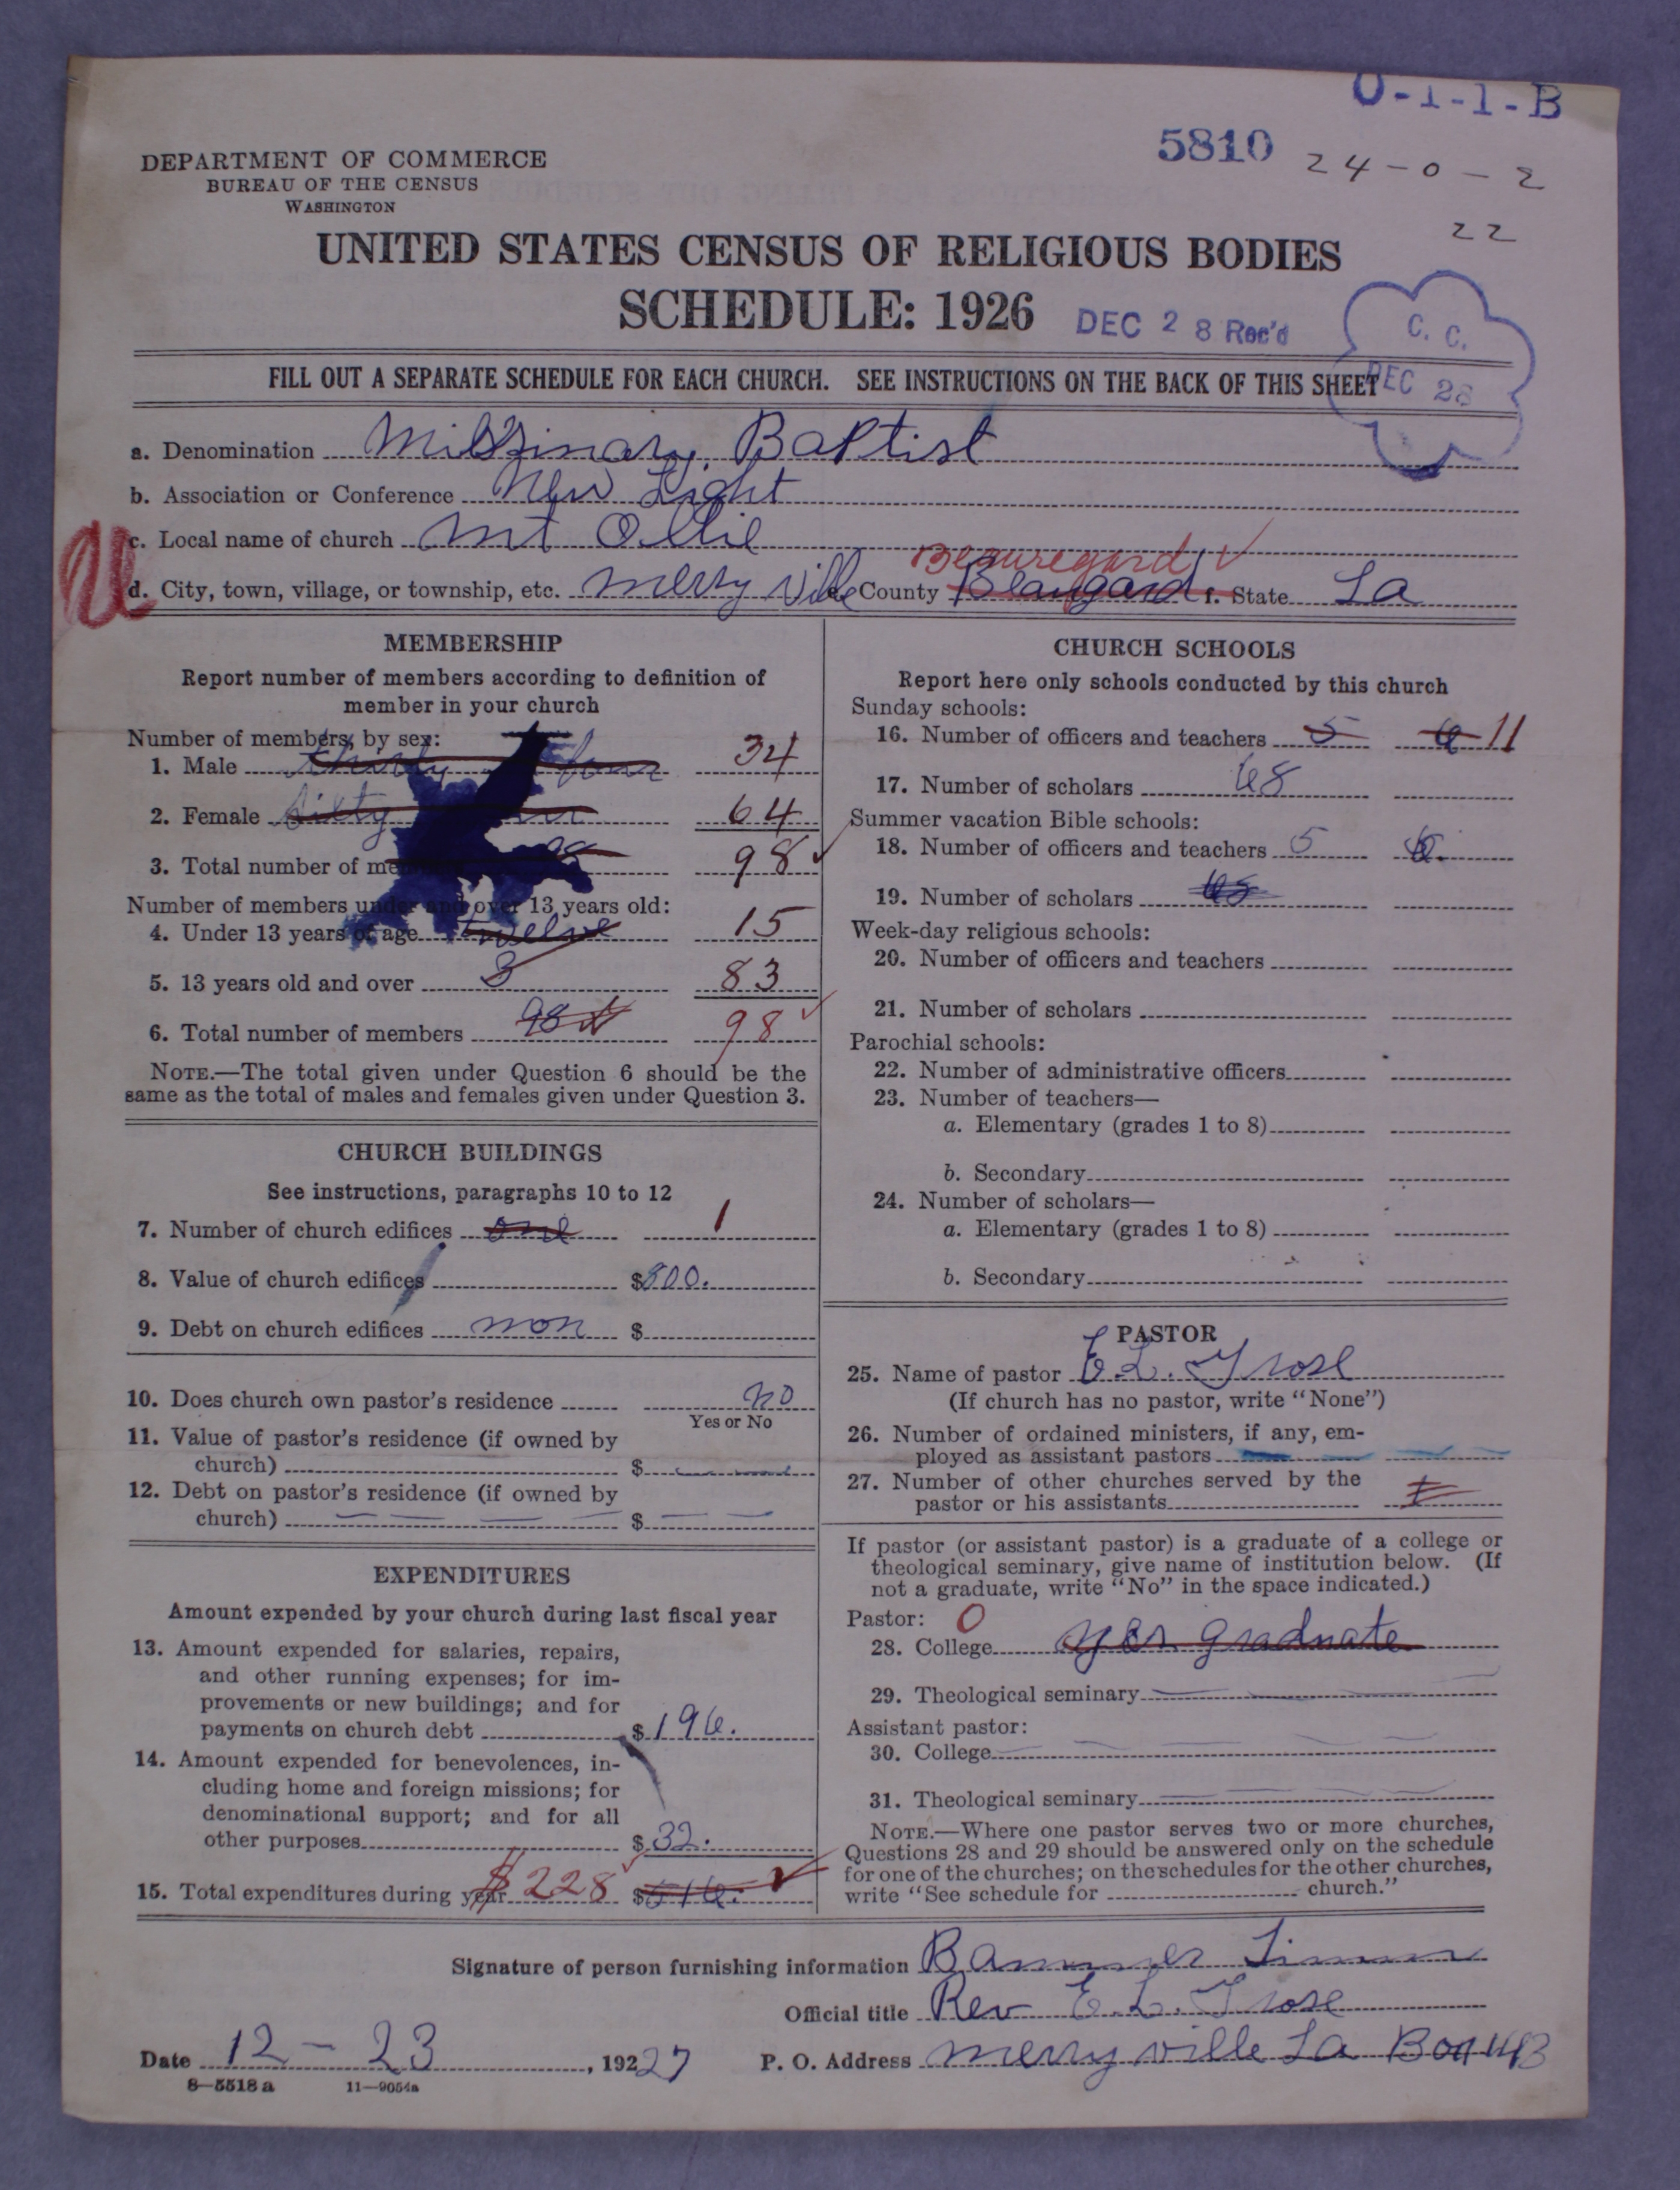 O-1-1-B
5810 24-0-2
22
DEPARTMENT OF COMMERCE
BUREAU OF THE CENSUS
WASHINGTON
UNITED STATES CENSUS OF RELIGIOUS BODIES
SCHEDULE: 1926
DEC 28 Rec'd
C. C.
DEC 28
FILL OUT A SEPARATE SCHEDULE FOR EACH CHURCH. SEE INSTRUCTIONS ON THE BACK OF THIS SHEET
a. Denomination Missinary Baptist
b. Association or Conference New Light
c. Local name of church Mt Ollie
Beauregard
d. City, town, village, or township, etc. Merry ville County f. State La
MEMBERSHIP
Report number of members according to definition of
member in your church
Number of members, by sex:
1. Male thirty four 34
2. Female 64
3. Total number of 98
Number of members under and over 13 years old:
4. Under 13 years of age twelve 15
5. 13 years old and over 3 83
6. Total number of members 98 98
NOTE.—The total given under Question 6 should be the
same as the total of males and females given under Question 3.
CHURCH BUILDINGS
See instructions, paragraphs 10 to 12
7. Number of church edifices one 1
8. Value of church edifices $800.
9. Debt on church edifices non $
10. Does church own pastor's residence no
Yes or No
11. Value of pastor's residence (if owned by
church) $
12. Debt on pastor's residence (if owned by
church) $
EXPENDITURES
Amount expended by your church during last fiscal year
13. Amount expended for salaries, repairs,
and other running expenses; for im-
provements or new buildings; and for
payments on church debt $196.
14. Amount expended for benevolences, in-
cluding home and foreign missions; for
denominational support; and for all
other purposes $32.
15. Total expenditures during year $228 $516.
CHURCH SCHOOLS
Report here only schools conducted by this church
Sunday schools:
16. Number of officers and teachers 5 6 11
17. Number of scholars 68
Summer vacation Bible schools:
18. Number of officers and teachers 5 6.
19. Number of scholars
Week-day religious schools:
20. Number of officers and teachers
21. Number of scholars
Parochial schools:
22. Number of administrative officers
23. Number of teachers—
a. Elementary (grades 1 to 8)
b. Secondary
24. Number of scholars—
a. Elementary (grades 1 to 8)
b. Secondary
PASTOR
25. Name of pastor E. L.
(If church has no pastor, write "None")
26. Number of ordained ministers, if any, em-
ployed as assistant pastors
27. Number of other churches served by the
pastor or his assistants
If pastor (or assistant pastor) is a graduate of a college or
theological seminary, give name of institution below. (If
not a graduate, write "No" in the space indicated.)
Pastor: 0
28. College yes graduate
29. Theological seminary
Assistant pastor:
30. College
31. Theological seminary
NOTE.—Where one pastor serves two or more churches,
Questions 28 and 29 should be answered only on the schedule
for one of the churches; on the schedules for the other churches,
write "See schedule for church."
Signature of person furnishing information
Official title Rev E. L.
Date 12-23, 19227
P. O. Address Merry ville La
8—5518 a 11—9054a